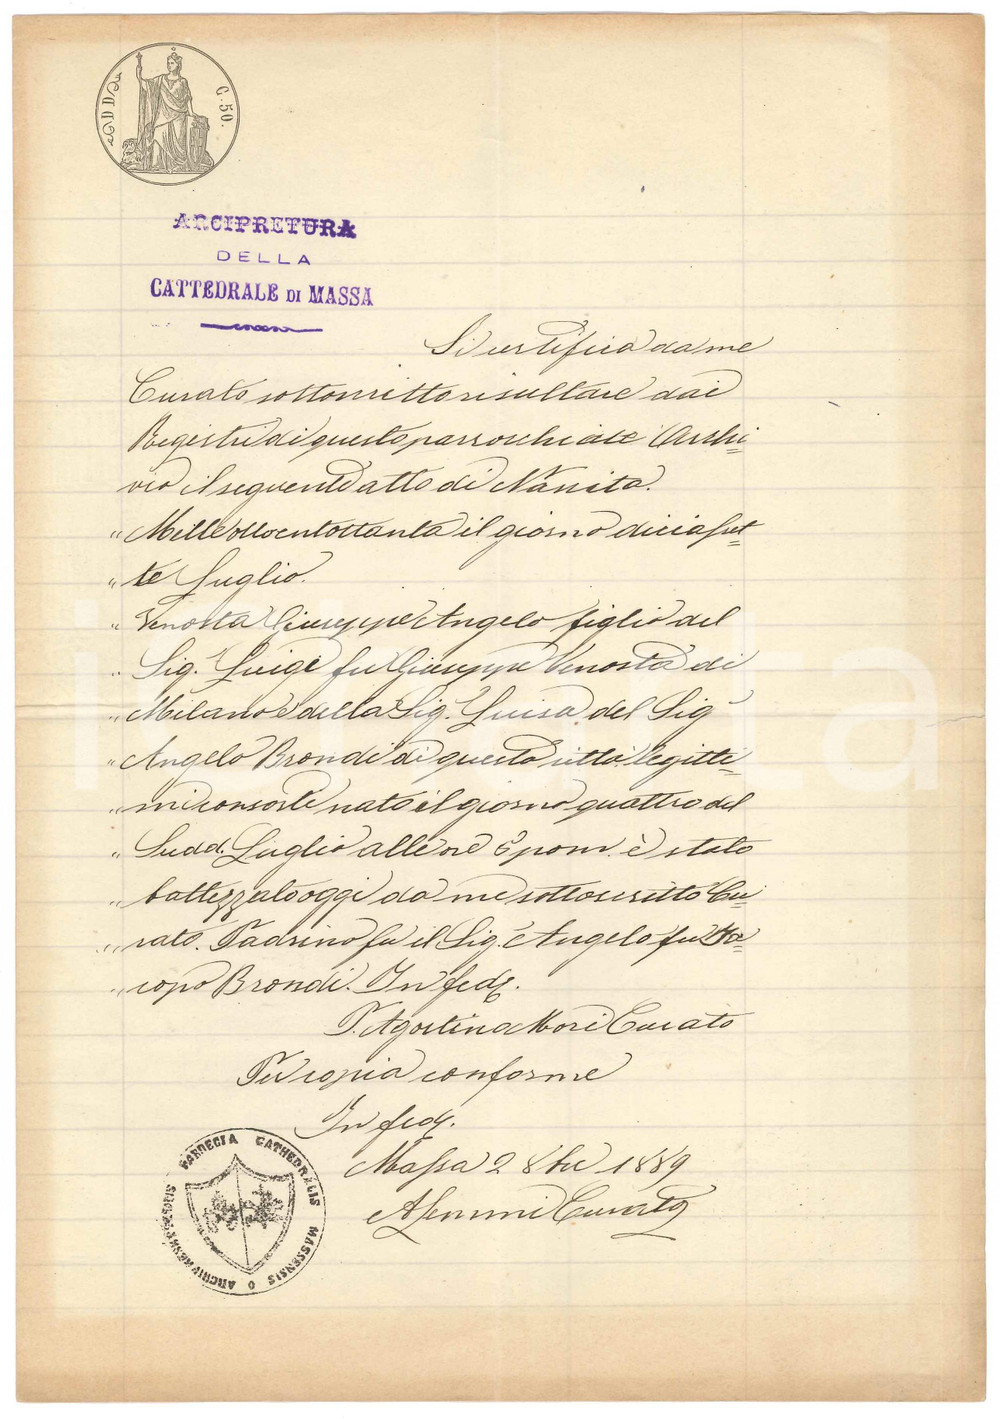 C. 50.
ARCIPRETURA
DELLA
CATTEDRALE DI MASSA
Si certifica da me
Curato sottoscritto risultare dai
Registri di questo parrocchiale Archi=
vio il seguente atto di Nascita.
„ Milleottocentottanta il giorno diciaset=
„ te Luglio.
„ Venosta Giuseppe Angelo figlio del
„ Sig. Luigi fu Giuseppe Venosta di
„ Milano e della Sig.ª Luisa del Sig.
„ Angelo Brondi di questa città legitti=
„ mi consorti nato il giorno quattro del
„ Sudd. Luglio alle ore 6 pom. è stato
„ battezzato oggi da me sottoscritto Cu=
„ rato. Padrino fu il Sig. Angelo fu Ja=
„ copo Brondi. In fede.
P. Agostino Mori Curato
Per copia conforme
In fede.
Massa 2 8bre 1889
Curato
PARRECIA CATHEDRALIS MASSENSIS